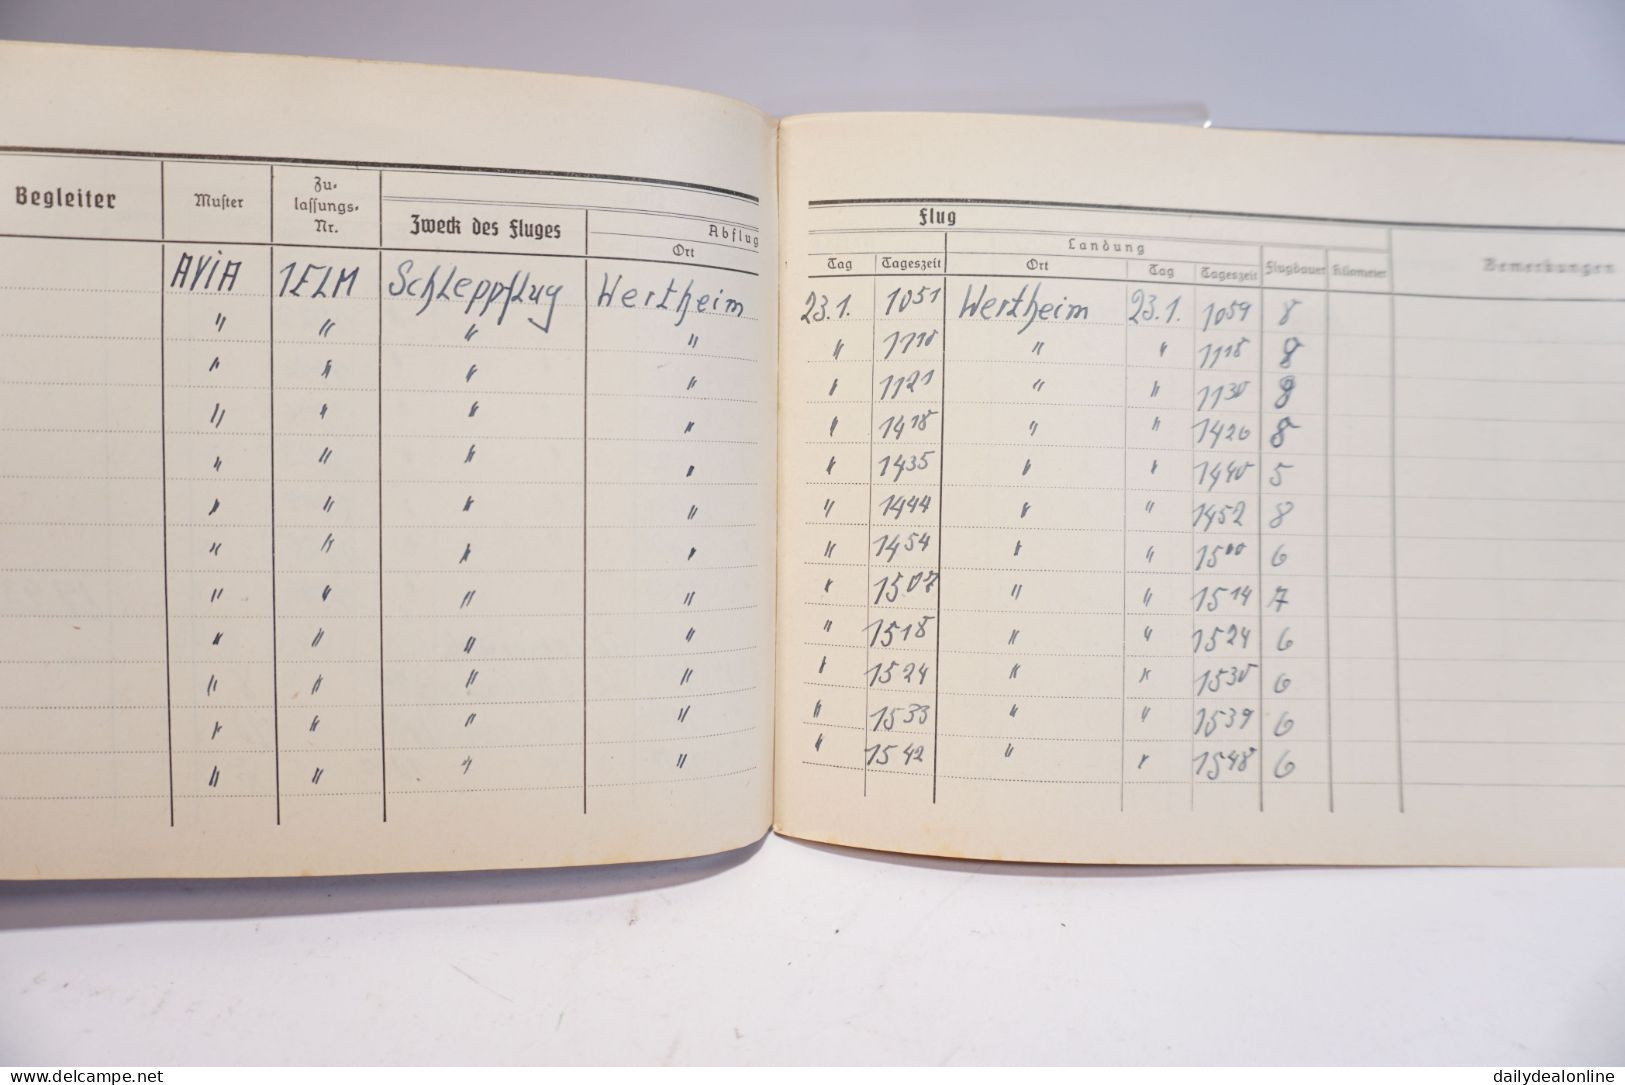 Begleiter Muster Zu- Zweck des Fluges Abflug
lassungs-
Nr. Ort
AVIA 1ELM Schleppflug Wertheim
" " " "
" " " "
" " " "
" " " "
" " " "
" " " "
" " " "
" " " "
" " " "
" " " "
" " " "
Flug
Landung Bemerkungen
Tag Tageszeit Ort Tag Tageszeit Flugdauer Kilometer
23.1. 1051 Wertheim 23.1. 1059 8
" 1110 " " 1118 8
" 1121 " " 1130 9
" 1418 " " 1426 8
" 1435 " " 1440 5
" 1444 " " 1452 8
" 1454 " " 1500 6
" 1507 " " 1514 7
" 1518 " " 1524 6
" 1524 " " 1530 6
" 1533 " " 1539 6
" 1542 " " 1548 6
www.delcampe.net
dailydealonline